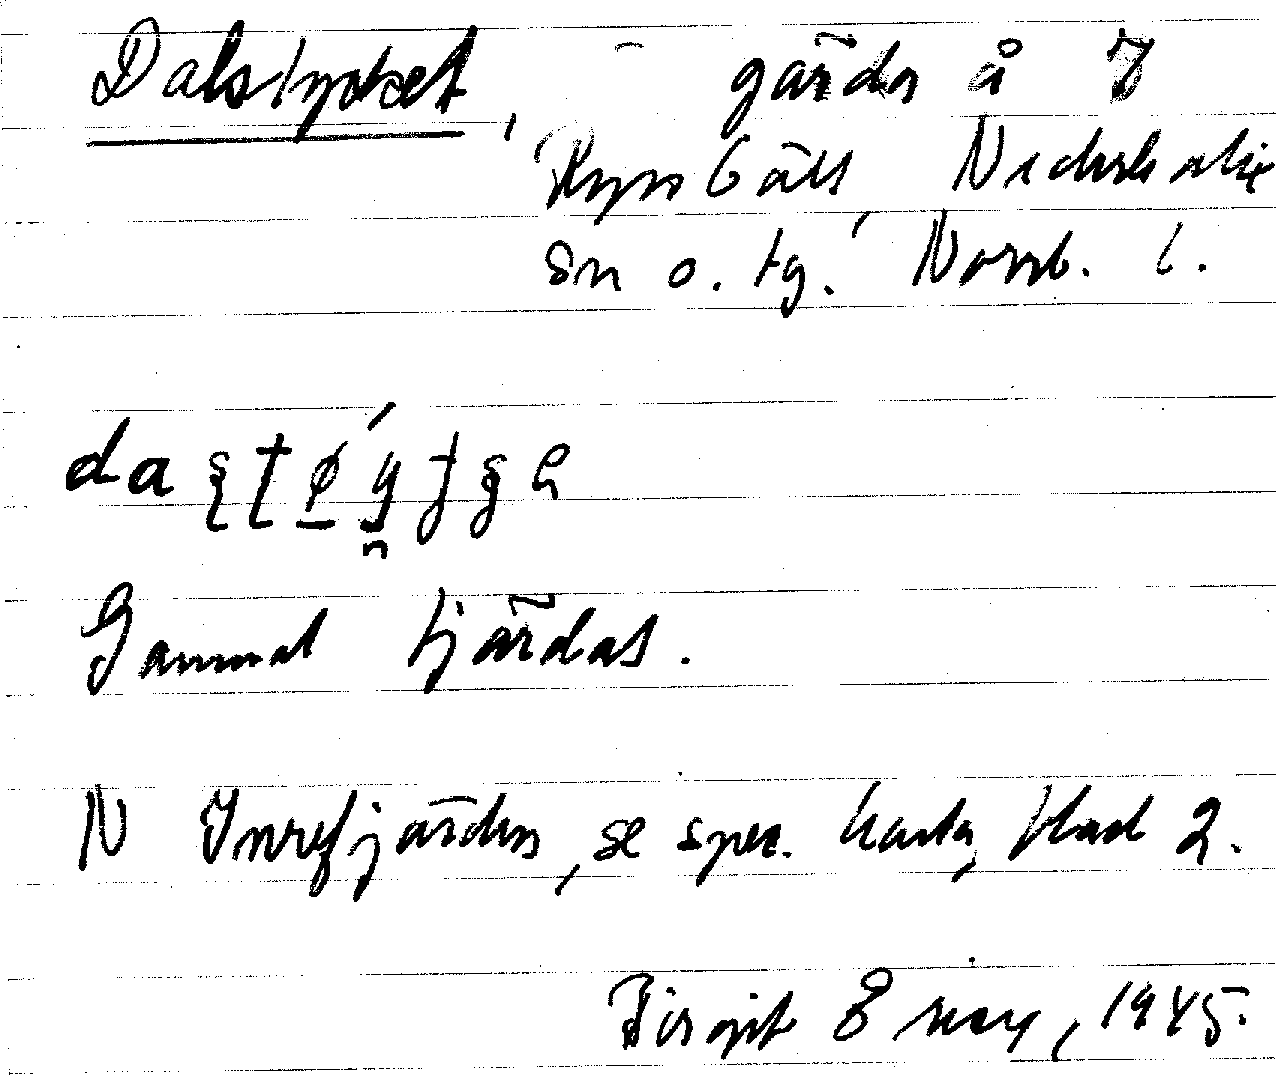 Dalstycket, gärda å 7
Ryssbält Nederkalix
sn o. tg. Norrb. l.
Gammal fjärdas.
N Inrefjärden, se spec. karta, blad 2.
Birgit 1945.